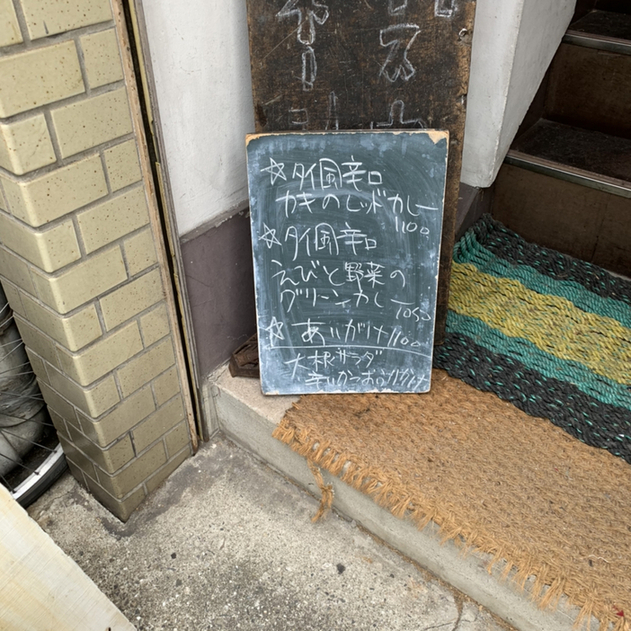 ☆タイ風辛口
カキのレッドカレー
1100
☆タイ風辛口
えびと野菜の
グリーンカレー
1050
☆あいがけ1100
大根サラダ